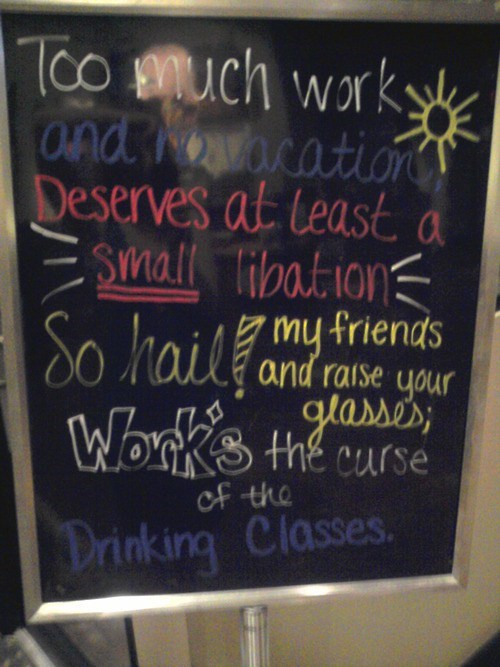 Too much work
and no vacation,
Deserves at least a
small libation
So hail! my friends
and raise your
glasses;
Work's the curse
of the
Drinking Classes.